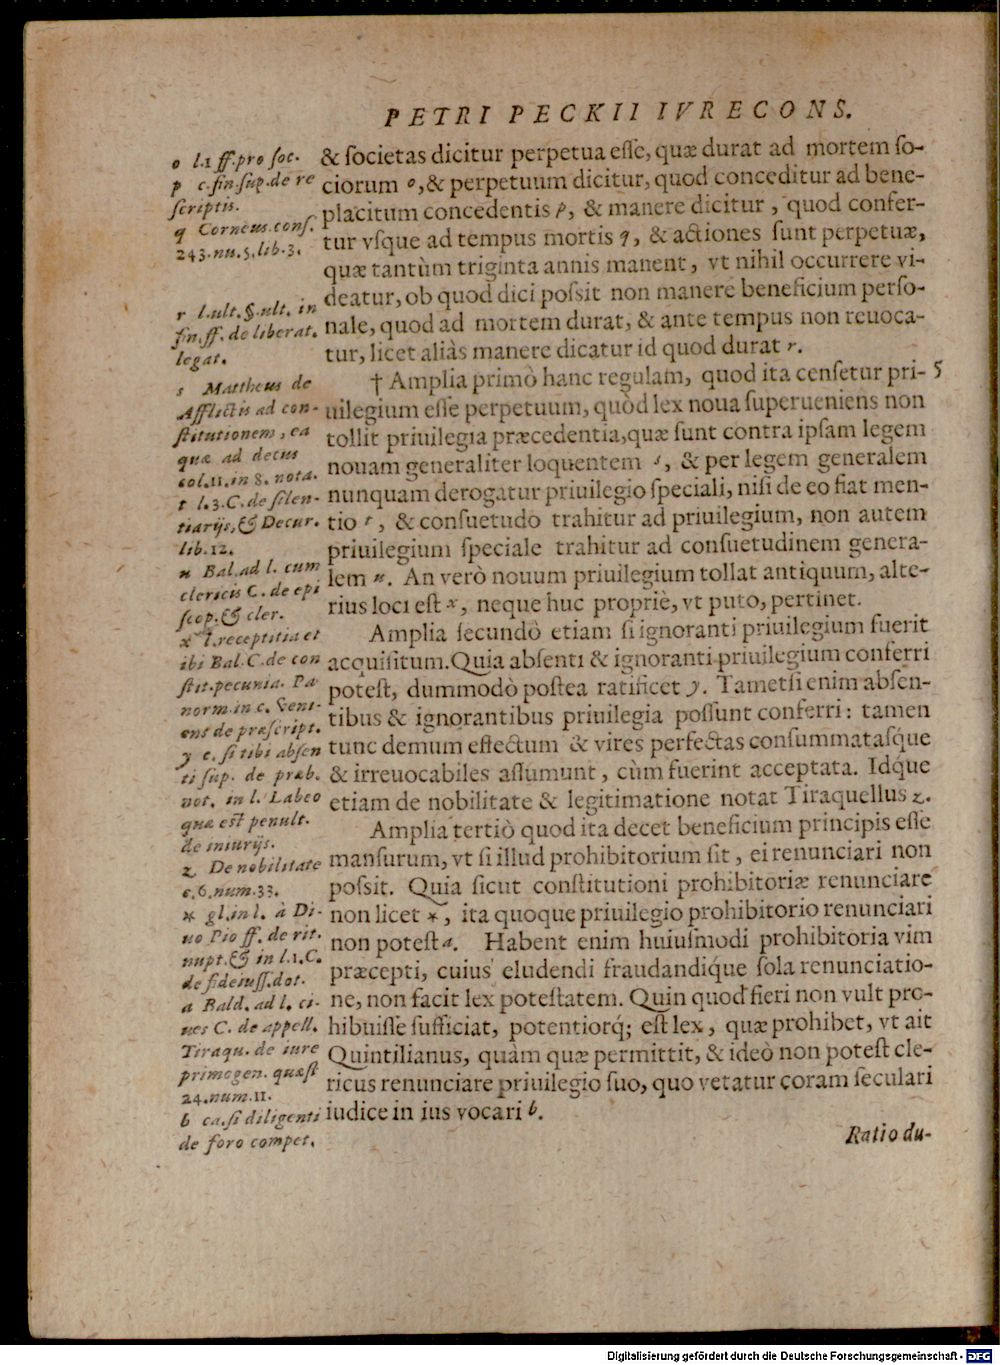 PETRI PECKII IVRECONS.
& ſocietas dicitur perpetua eſſe, quæ durat ad mortem ſo-
ciorum o, & perpetuum dicitur, quod conceditur ad bene-
placitum concedentis p, & manere dicitur, quod confer-
tur vſque ad tempus mortis q, & actiones ſunt perpetuæ,
quæ tantùm triginta annis manent, vt nihil occurrere vi-
deatur, ob quod dici poſsit non manere beneficium perſo-
nale, quod ad mortem durat, & ante tempus non reuoca-
tur, licet aliàs manere dicatur id quod durat r.
† Amplia primò hanc regulam, quod ita cenſetur pri- 5
uilegium eſſe perpetuum, quòd lex noua ſuperueniens non
tollit priuilegia præcedentia, quæ ſunt contra ipſam legem
nouam generaliter loquentem s, & per legem generalem
nunquam derogatur priuilegio ſpeciali, niſi de eo fiat men-
tio t, & conſuetudo trahitur ad priuilegium, non autem
priuilegium ſpeciale trahitur ad conſuetudinem genera-
lem u. An verò nouum priuilegium tollat antiquum, alte-
rius loci eſt x, neque huc propriè, vt puto, pertinet.
Amplia ſecundò etiam ſi ignoranti priuilegium fuerit
acquiſitum. Quia abſenti & ignoranti priuilegium conferri
poteſt, dummodò poſtea ratificet y. Tametſi enim abſen-
tibus & ignorantibus priuilegia poſſunt conferri: tamen
tunc demum effectum & vires perfectas conſummataſque
& irreuocabiles aſſumunt, cùm fuerint acceptata. Idque
etiam de nobilitate & legitimatione notat Tiraquellus z.
Amplia tertiò quod ita decet beneficium principis eſſe
manſurum, vt ſi illud prohibitorium ſit, ei renunciari non
poſsit. Quia ſicut conſtitutioni prohibitoriæ renunciare
non licet *, ita quoque priuilegio prohibitorio renunciari
non poteſt a. Habent enim huiuſmodi prohibitoria vim
præcepti, cuius eludendi fraudandiq́ue ſola renunciatio-
ne, non facit lex poteſtatem. Quin quod fieri non vult pro-
hibuiſſe ſufficiat, potentiorq́; eſt lex, quæ prohibet, vt ait
Quintilianus, quàm quæ permittit, & ideò non poteſt cle-
ricus renunciare priuilegio ſuo, quo vetatur coram ſeculari
iudice in ius vocari b.
Ratio du-
o l.1 ff. pro ſoc.
p c. fin. ſup. de re
ſcriptis.
q Corneus conſ.
243. nu. 5. lib. 3.
r l. ult. §. ult. in
fin. ff. de liberat.
legat.
s Mattheus de
Afflictis ad con-
ſtitutionem, ea
quæ ad decus
col. 11. in 8. nota.
t l. 3. C. de ſilen-
tiarijs, & Decur.
lib. 12.
u Bal. ad l. cum
clericis C. de epi
ſcop. & cler.
x l. receptitia et
ibi Bal. C. de con
ſtit. pecunia. Pa
norm. in c. Veni-
ens de præſcript.
y c. ſi tibi abſen
ti ſup. de præb.
not. in l. Labeo
quæ eſt penult.
de iniurijs.
z De nobilitate
c. 6. num. 33.
* gl. in l. à Di-
uo Pio ff. de rit.
nupt. & in l. 1. C.
de fideiuſſ. dot.
a Bald. ad l. ci-
ues C. de appell.
Tiraqu. de iure
primogen. quæſt
24. num. 11.
b ca. ſi diligenti
de foro compet.
Digitalisierung gefördert durch die Deutsche Forschungsgemeinschaft - DFG